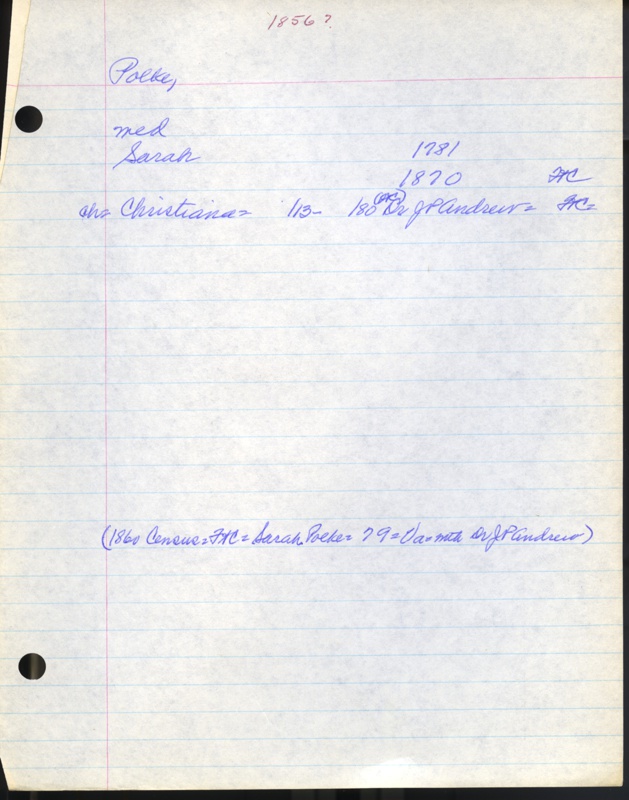 1856?
Polke,
med
Sarah 1781
1870 FHC
ch= Christiana= 113- 180 Dr J P Andrew= FHC=
(1860 Census= FHC= Sarah Polke= 79= Va= with Dr J P Andrew)